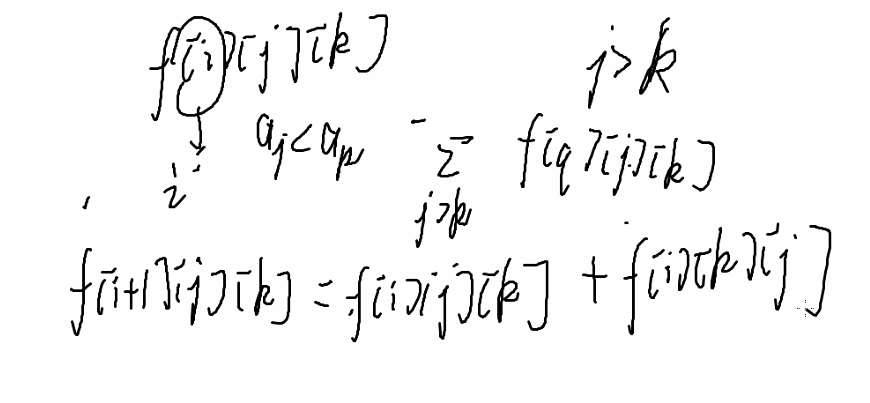 f[i][j][k] j>k
i a_j<a_k Σ_{j>k} f[q][j][k]
f[i+1][j][k] = f[i][j][k] + f[i][k][j]